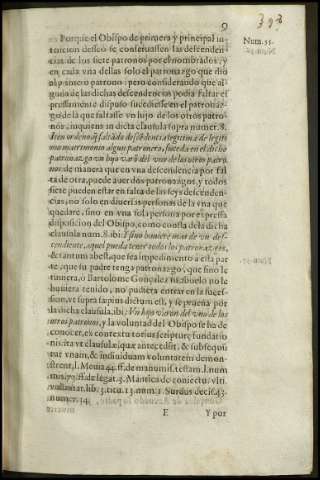 9
393
Num. 55.
Porque el Obispo de primera y principal in-
tencion desseò se conseruassen las descenden-
cias de los siete patronos por el nombrados, y
en cada vna dellas solo el patronazgo que dio
al primero patron: pero considerando que al-
guna de las dichas descendencias podia faltar ex-
pressamente dispuso sucediesse en el patronaz-
go de la que faltasse vn hijo de los otros patro-
nos, inquiens in dicta clausula supra numer. 8.
Iten ordeno q̃ faltādo descendencia legitima de legiti-
mo matrimonio algun patronero, suceda en el dicho
patronazgo vn hijo varō del vno de los otros patro-
nos: de manera que en vna descendencia por fal-
ta de otra, puede auer dos patronazgos, y todos
siete pueden estar en falta de las seys descenden-
cias, no solo en diuersas personas de la vna que
quedare, sino en vna sola persona por expressa
disposicion del Obispo, como consta de la dicha
clausula num. 8. ibi: I si no huuiere mas de vn des-
cendiente, aquel pueda tener todos los patronazgos,
& tantum abest, que sea impedimento à esta par-
te, que su padre tenga patronazgo, que sino le
tuuiera, o Bartolome Gonçalez su abuelo no le
huuiera tenido, no pudiera entrar en la suces-
sion, vt supra sæpius dictum est, y se prueua por
la dicha clausula, ibi: Vn hijo varon del vno de los
otros patronos, y la voluntad del Obispo se ha de
conocer, ex contextu totius scripturæ fundatio-
nis, ita vt clausulæ quæ antecedūt, & subsequū
tur vnam, & indiuiduam voluntatem demon-
strent, l. Meuia 44. ff. de manumiss. testam. l. num-
mis, 75. ff. de legat. 3. Mantica de coniectur. vlti.
voluntat. lib. 3. titu. 13. num. 1. Surdus decis. 43.
numer. 34.
E Y por